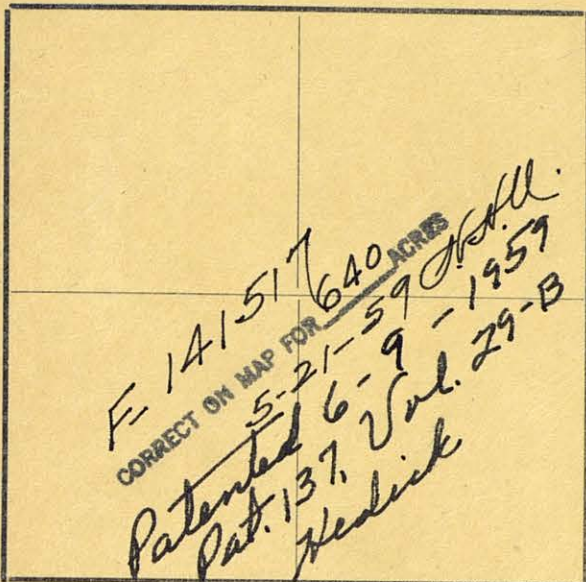 F. 141517
CORRECT ON MAP FOR 640 ACRES
5-21-59
Patented 6-9-1959
Pat. 137, Vol. 29-B
Hedick